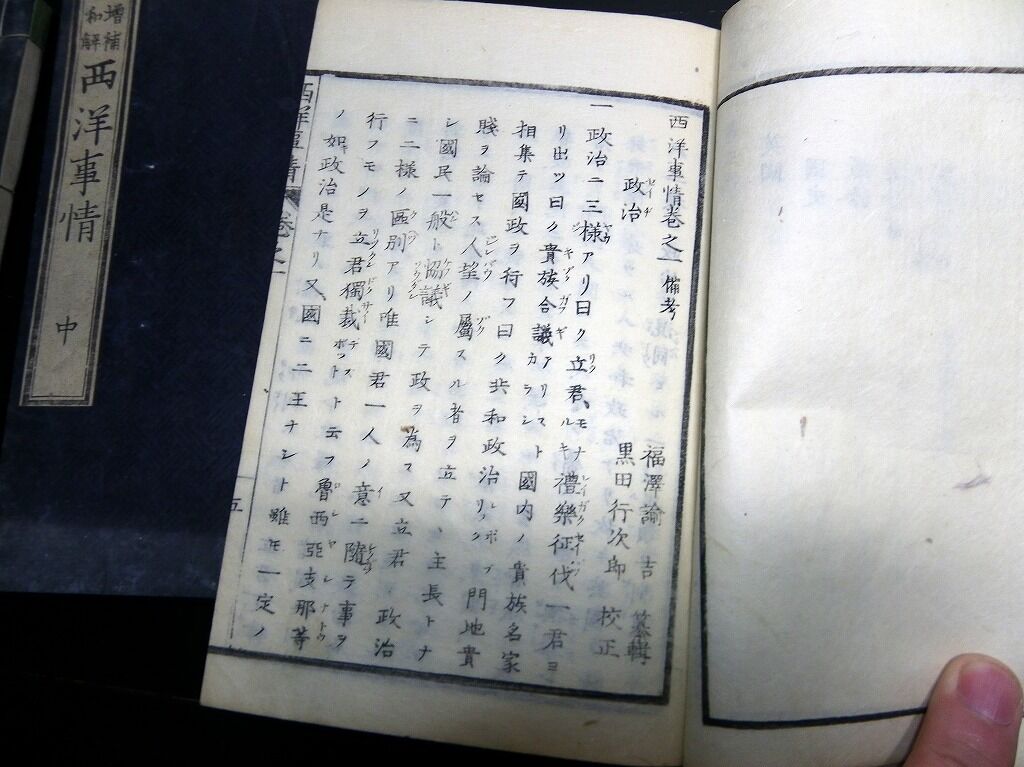 増補
和解
西洋事情
中
西洋事情卷之一 備考
福澤諭吉 纂輯
黒田行次郎 校正
政治
一政治ニ三様アリ曰ク立君モナルキ禮樂征伐一君ヨ
リ出ツ曰ク貴族合議アリストカラシ國内ノ貴族名家
相集テ國政ヲ行フ曰ク共和政治レポブリック門地貴
賤ヲ論セス人望ノ屬スル者ヲ立テヽ主長トナ
シ國民一般ト協議シテ政ヲ為ス又立君ノ政治
ニ二様ノ區別アリ唯國君一人ノ意ニ隨テ事ヲ
行フモノヲ立君獨裁デスポットト云フ魯西亞支那等
ノ如政治是ナリ又國ニ二王ナシト雖モ一定ノ
西洋事情 卷之一
五